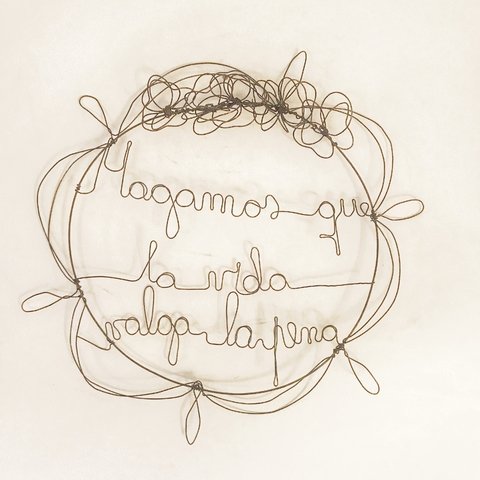 Hagamos que
la vida
valga la pena